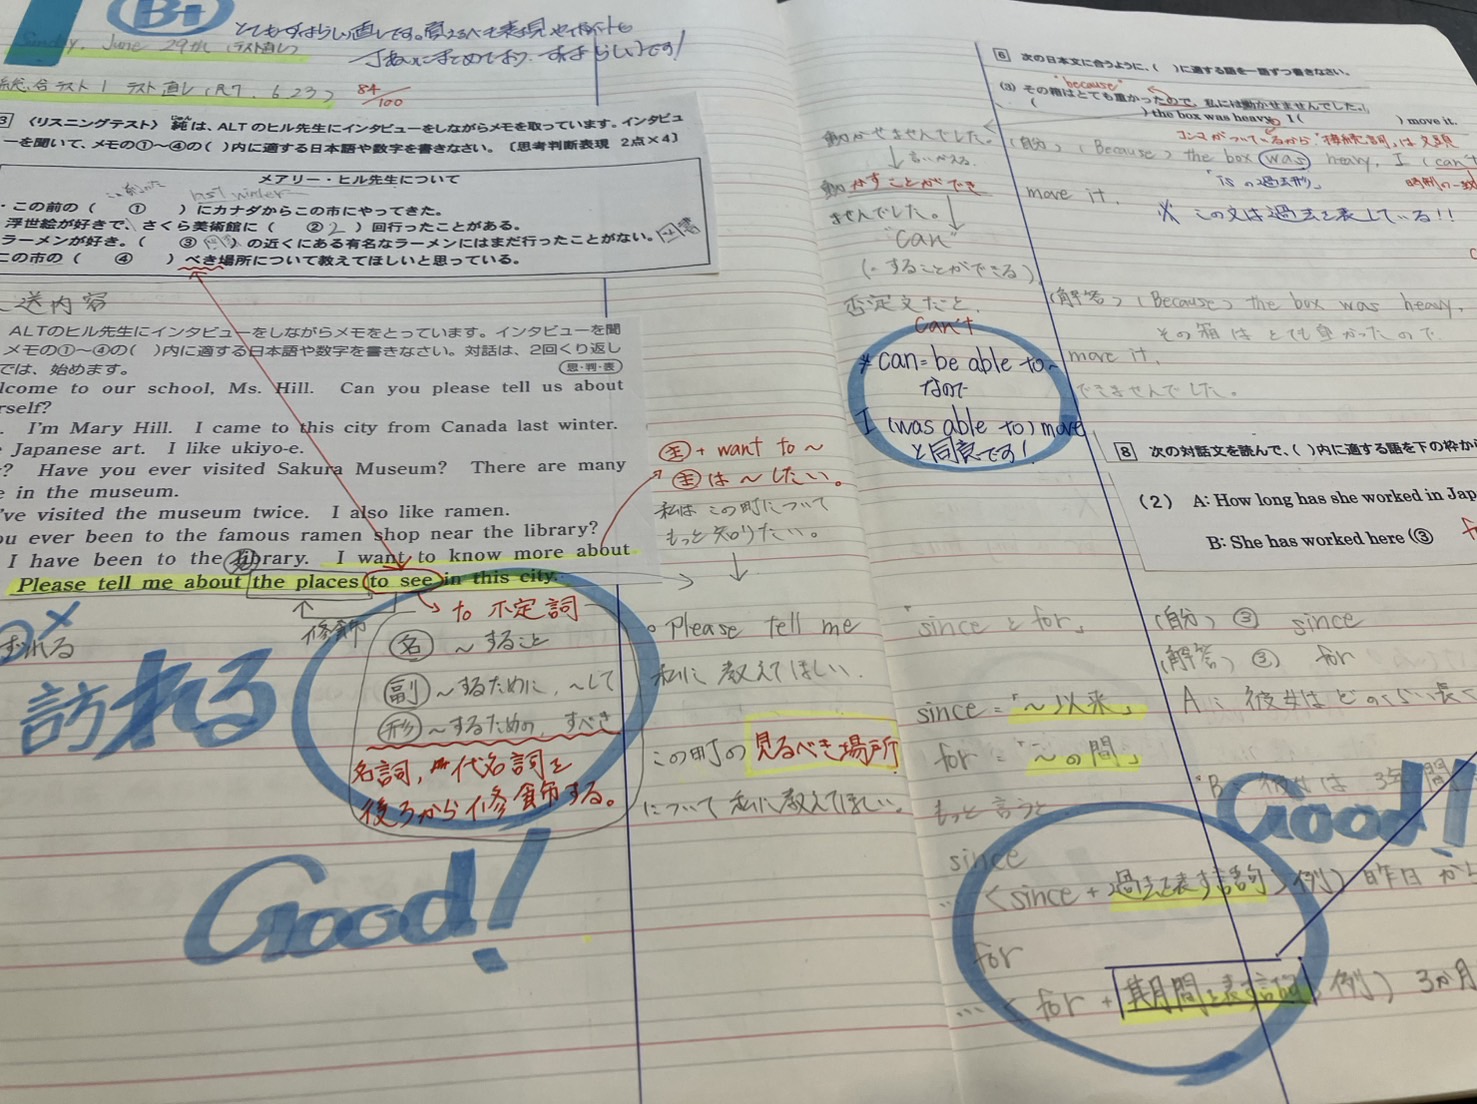 B+
とてもすばらしい直しです。覚えるべき表現やポイントも
丁ねいにまとめており、すばらしいです!
Sunday, June 29th (テスト直し)
総合テスト1 テスト直し (R7. 6.23) 84/100
3 〈リスニングテスト〉 純は、ALTのヒル先生にインタビューをしながらメモを取っています。インタビュ
じゅん
ーを聞いて、メモの①~④の( )内に適する日本語や数字を書きなさい。〔思考判断表現 2点×4〕
メアリー・ヒル先生について
last winter
・この前の( ① )にカナダからこの市にやってきた。
浮世絵が好きで、さくら美術館に( ② 2 )回行ったことがある。
ラーメンが好き。( ③ )の近くにある有名なラーメンにはまだ行ったことがない。
この市の( ④ )べき場所について教えてほしいと思っている。
送内容
ALTのヒル先生にインタビューをしながらメモをとっています。インタビューを聞
メモの①~④の( )内に適する日本語や数字を書きなさい。対話は、2回くり返し
では、始めます。 思・判・表
lcome to our school, Ms. Hill. Can you please tell us about
rself?
. I'm Mary Hill. I came to this city from Canada last winter.
Japanese art. I like ukiyo-e.
? Have you ever visited Sakura Museum? There are many
e in the museum.
've visited the museum twice. I also like ramen.
ou ever been to the famous ramen shop near the library?
I have been to the library. I want to know more about
Please tell me about the places to see in this city.
修飾
訪れる
to 不定詞
名 ~すること
副 ~するために、~して
形 ~するための、すべき
名詞, 代名詞を
後ろから修飾する。
Good!
主 + want to ~
主 は ~したい。
私はこの町について
もっと知りたい。
Please tell me
私に教えてほしい.
この町の見るべき場所
について私に教えてほしい。
6 次の日本文に合うように、( )に適する語を一語ずつ書きなさい。
"because"
(3) その箱はとても重かったので、私には動かせませんでした。
( ) the box was heavy, I ( ) move it.
コンマがついているから"接続詞"は文頭
(自分) (Because) the box was heavy, I (can't
move it.
"isの過去形"
※ この文は過去を表している!!
動かせませんでした。
言いかえる
動かすことができ
ませんでした。
"can"
(~することができる)
否定文だと、
can't
*can = be able to~
なので
I (was able to) move
と同意です!
(解答) (Because) the box was heavy,
その箱はとても重かったので
move it.
できませんでした。
8 次の対話文を読んで、( )内に適する語を下の枠から
(2) A: How long has she worked in Jap
B: She has worked here (③
「since と for」
(自分) ③ since
(解答) ③ for
since = 「~以来」
for = 「~の間」
A: 彼女はどのくらい長く
B: 彼女は 3年間
もっと言うと
Good!
since
… <since + 過去を表す語句> 例) 昨日から
for
… <for + 期間を表す語句> 例) 3か月